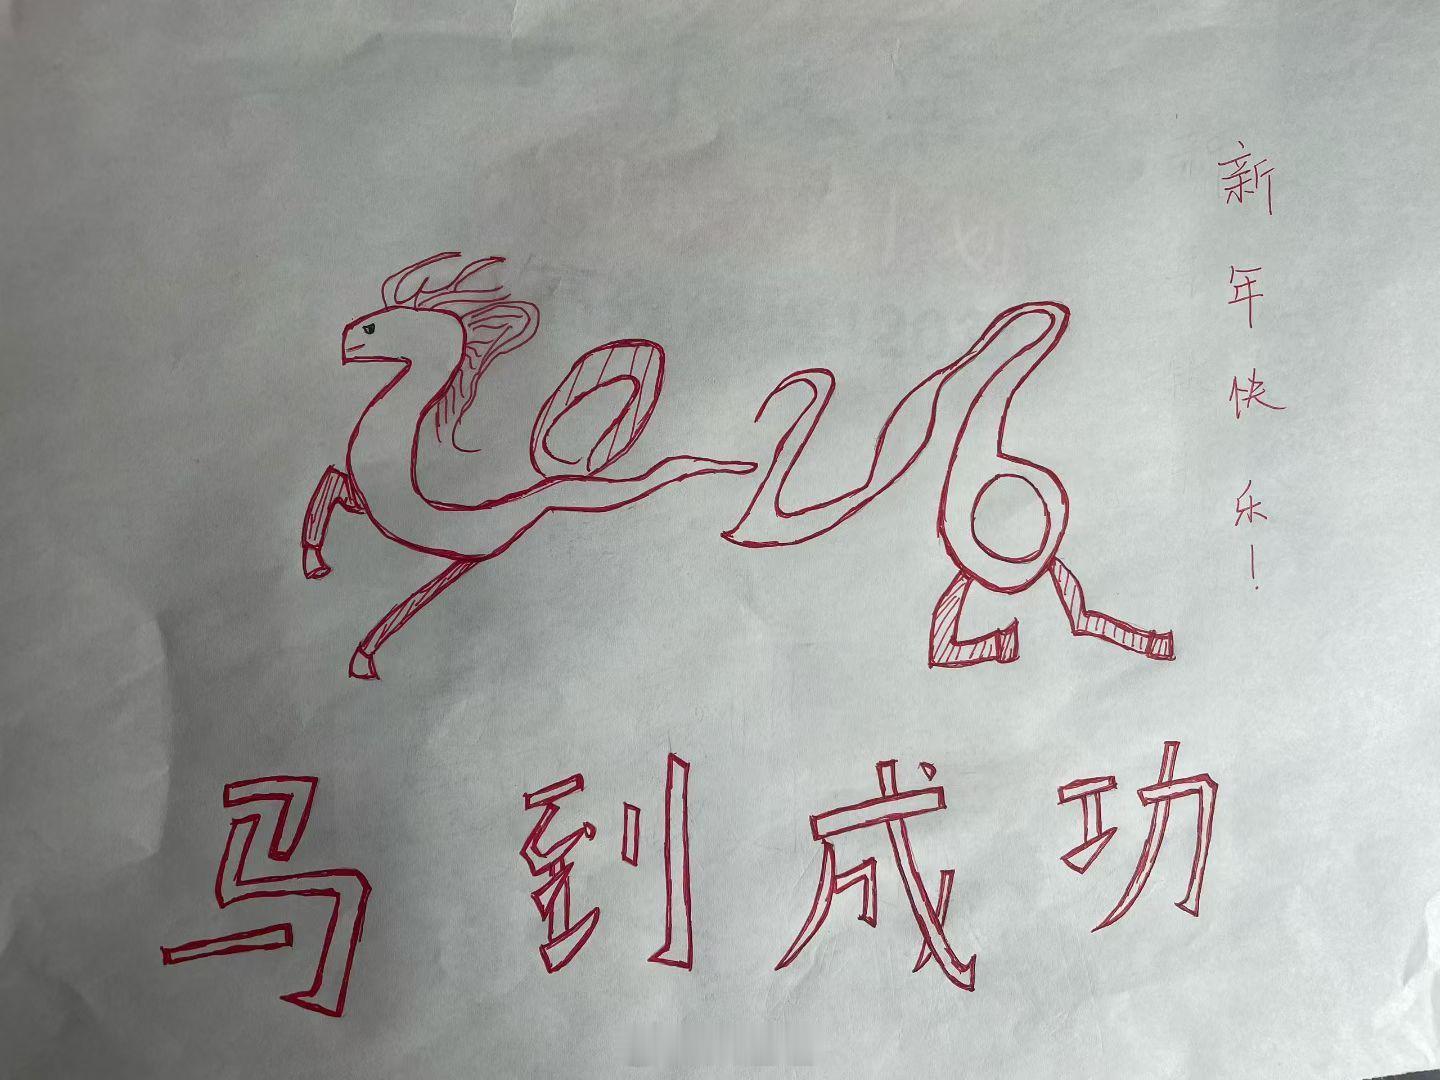 新年快乐！
马到成功